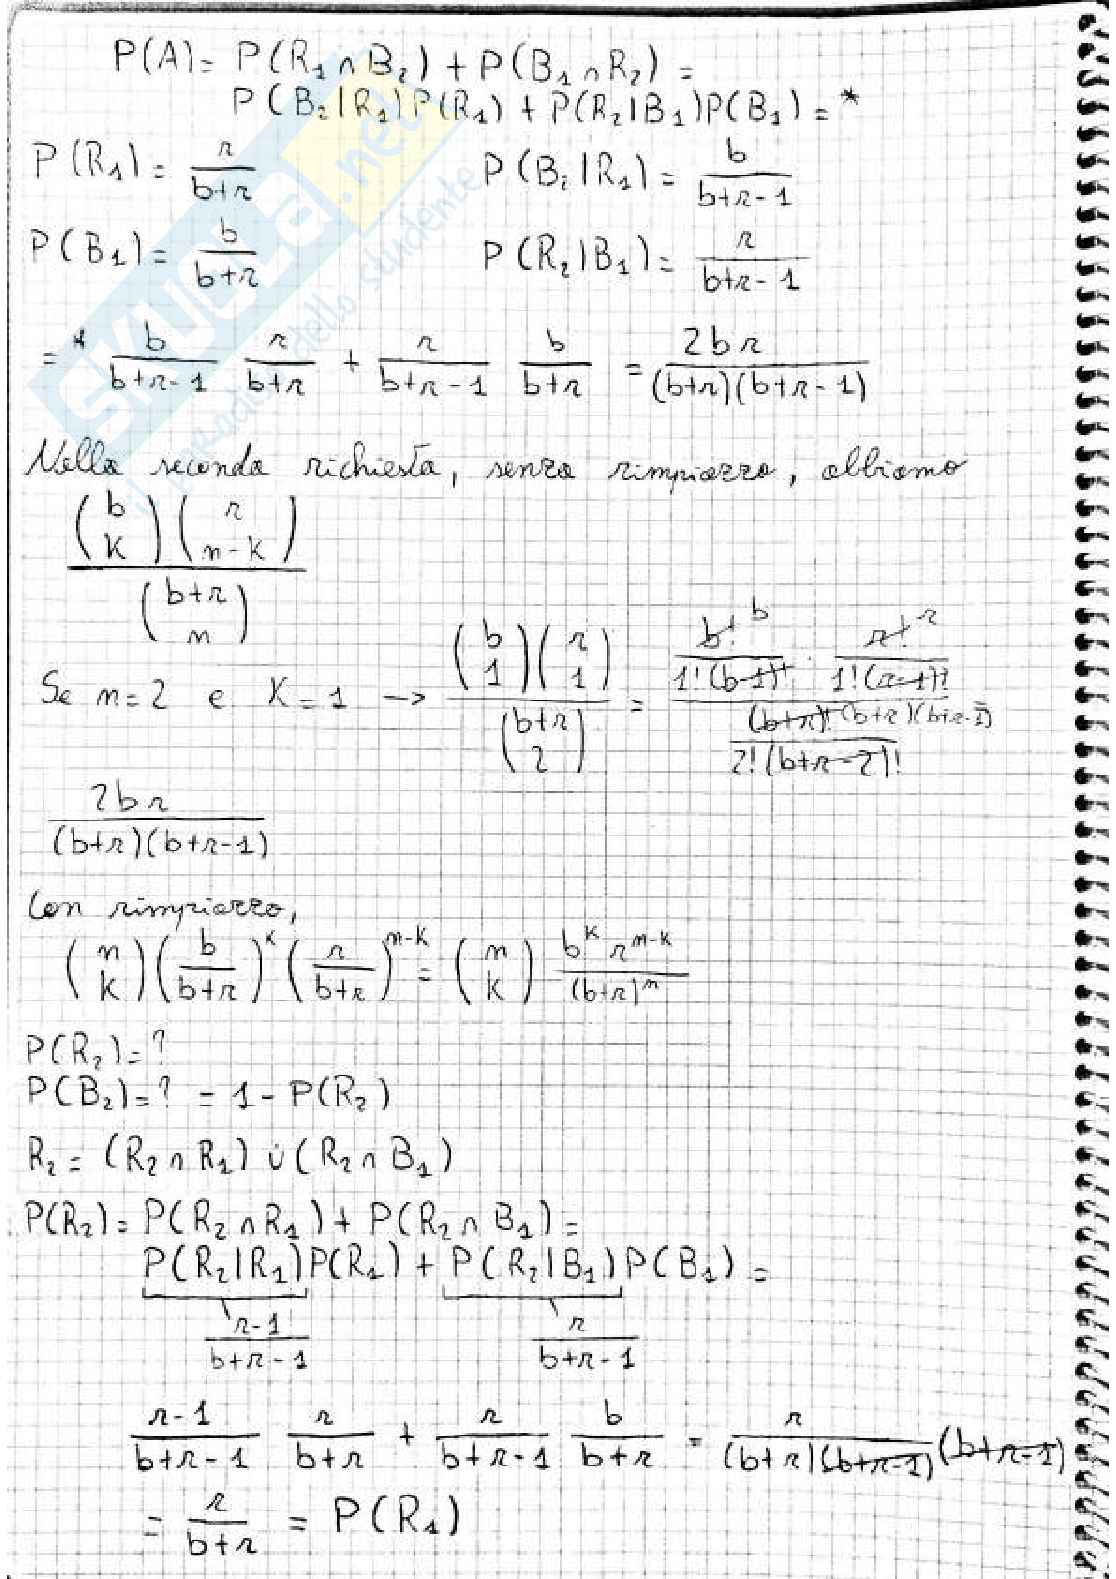 P(A) = P(R₁ ∩ B₂) + P(B₁ ∩ R₂) =
P(B₂|R₁)P(R₁) + P(R₂|B₁)P(B₁) = *
P(R₁) = r/(b+r) P(B₂|R₁) = b/(b+r-1)
P(B₁) = b/(b+r) P(R₂|B₁) = r/(b+r-1)
=* b/(b+r-1) r/(b+r) + r/(b+r-1) b/(b+r) = 2br/((b+r)(b+r-1))
Nella seconda richiesta, senza rimpiazzo, abbiamo
(b K)(r n-K) / (b+r n)
Se n=2 e K=1 → (b 1)(r 1) / (b+r 2) = b! b/(1!(b-1)!) · r! r/(1!(r-1)!) / (b+r)! (b+r)(b+r-1)/(2!(b+r-2)!) =
2br/((b+r)(b+r-1))
Con rimpiazzo,
(n K)(b/(b+r))^K (r/(b+r))^(n-K) = (n K) b^K r^(n-K)/(b+r)^n
P(R₂) = ?
P(B₂) = ? = 1 - P(R₂)
R₂ = (R₂ ∩ R₁) ∪̇ (R₂ ∩ B₁)
P(R₂) = P(R₂ ∩ R₁) + P(R₂ ∩ B₁) =
P(R₂|R₁)P(R₁) + P(R₂|B₁)P(B₁) =
(r-1)/(b+r-1) r/(b+r-1)
(r-1)/(b+r-1) r/(b+r) + r/(b+r-1) b/(b+r) = r/((b+r)(b+r-1)) (b+r-1)
= r/(b+r) = P(R₁)
skuola.net
dello studente